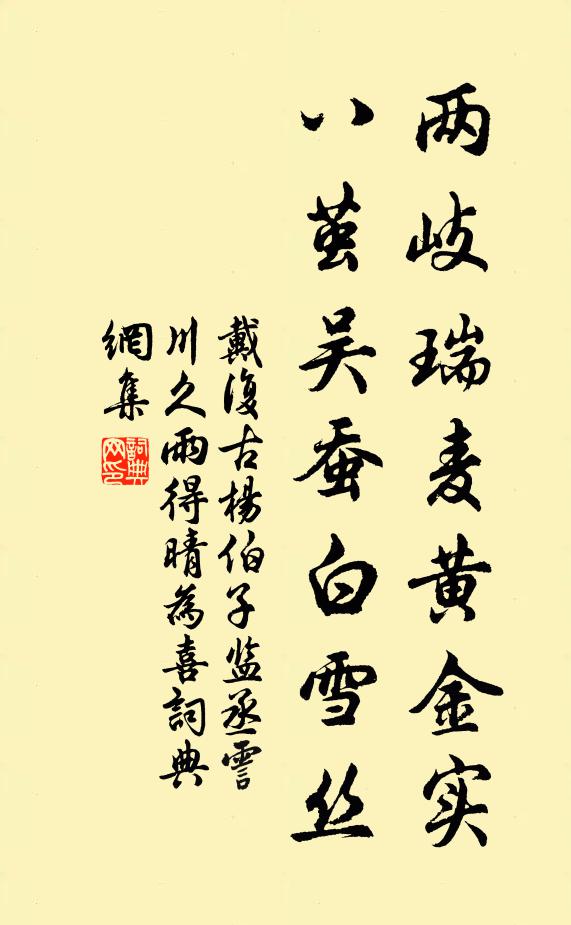 两岐瑞麦黄金实
八茧吴蚕白雪丝
戴復古楊伯子监丞霅
川久雨得晴為喜詞典
網集
詞典网印